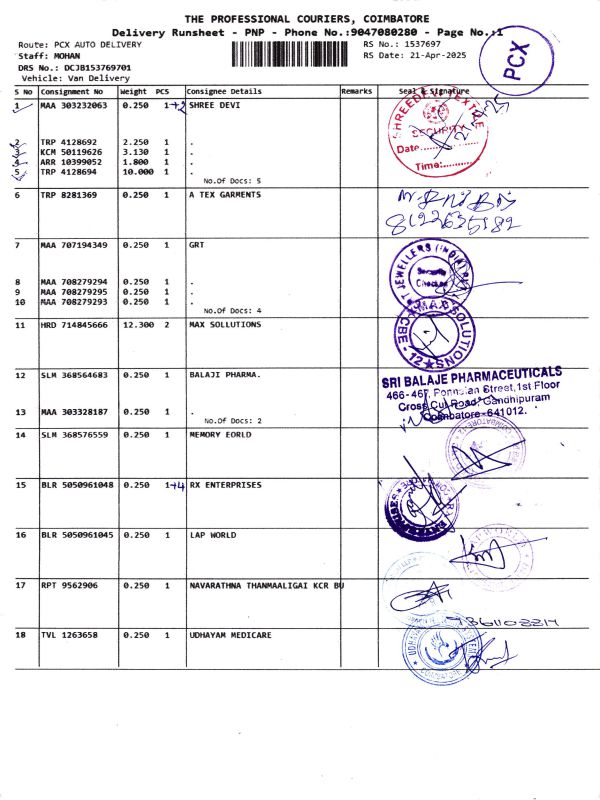 THE PROFESSIONAL COURIERS, COIMBATORE
Delivery Runsheet - PNP - Phone No.:9047080280 - Page No.:1
Route: PCX AUTO DELIVERY
Staff: MOHAN
DRS No.: DCJB153769701
Vehicle: Van Delivery
RS No.: 1537697
RS Date: 21-Apr-2025
PCX
S No Consignment No Weight PCS Consignee Details Remarks Seal & Signature
1 MAA 303232063 0.250 1+2 SHREE DEVI
2 TRP 4128692 2.250 1 .
3 KCM 50119626 3.130 1 .
4 ARR 10399052 1.800 1 .
5 TRP 4128694 10.000 1 .
No.Of Docs: 5
SHREEDEVI TEXTILE
SECURITY
Date
Time:
6 TRP 8281369 0.250 1 A TEX GARMENTS
8122635182
7 MAA 707194349 0.250 1 GRT
8 MAA 708279294 0.250 1 .
9 MAA 708279295 0.250 1 .
10 MAA 708279293 0.250 1 .
No.Of Docs: 4
JEWELLERS (INDIA)
Security
Checked
11 HRD 714845666 12.300 2 MAX SOLLUTIONS
MAX SOLUTIONS
CBE - 12
12 SLM 368564683 0.250 1 BALAJI PHARMA.
13 MAA 303328187 0.250 1 .
No.Of Docs: 2
SRI BALAJE PHARMACEUTICALS
466-467, Ponnaian Street,1st Floor
Cross Cut Road, Gandhipuram
Coimbatore-641012.
14 SLM 368576559 0.250 1 MEMORY EORLD
COIMBATORE-12
15 BLR 5050961048 0.250 1+4 RX ENTERPRISES
ENTERPRISES
16 BLR 5050961045 0.250 1 LAP WORLD
17 RPT 9562906 0.250 1 NAVARATHNA THANMAALIGAI KCR BU
18 TVL 1263658 0.250 1 UDHAYAM MEDICARE
UDHAYAM
COIMBATORE